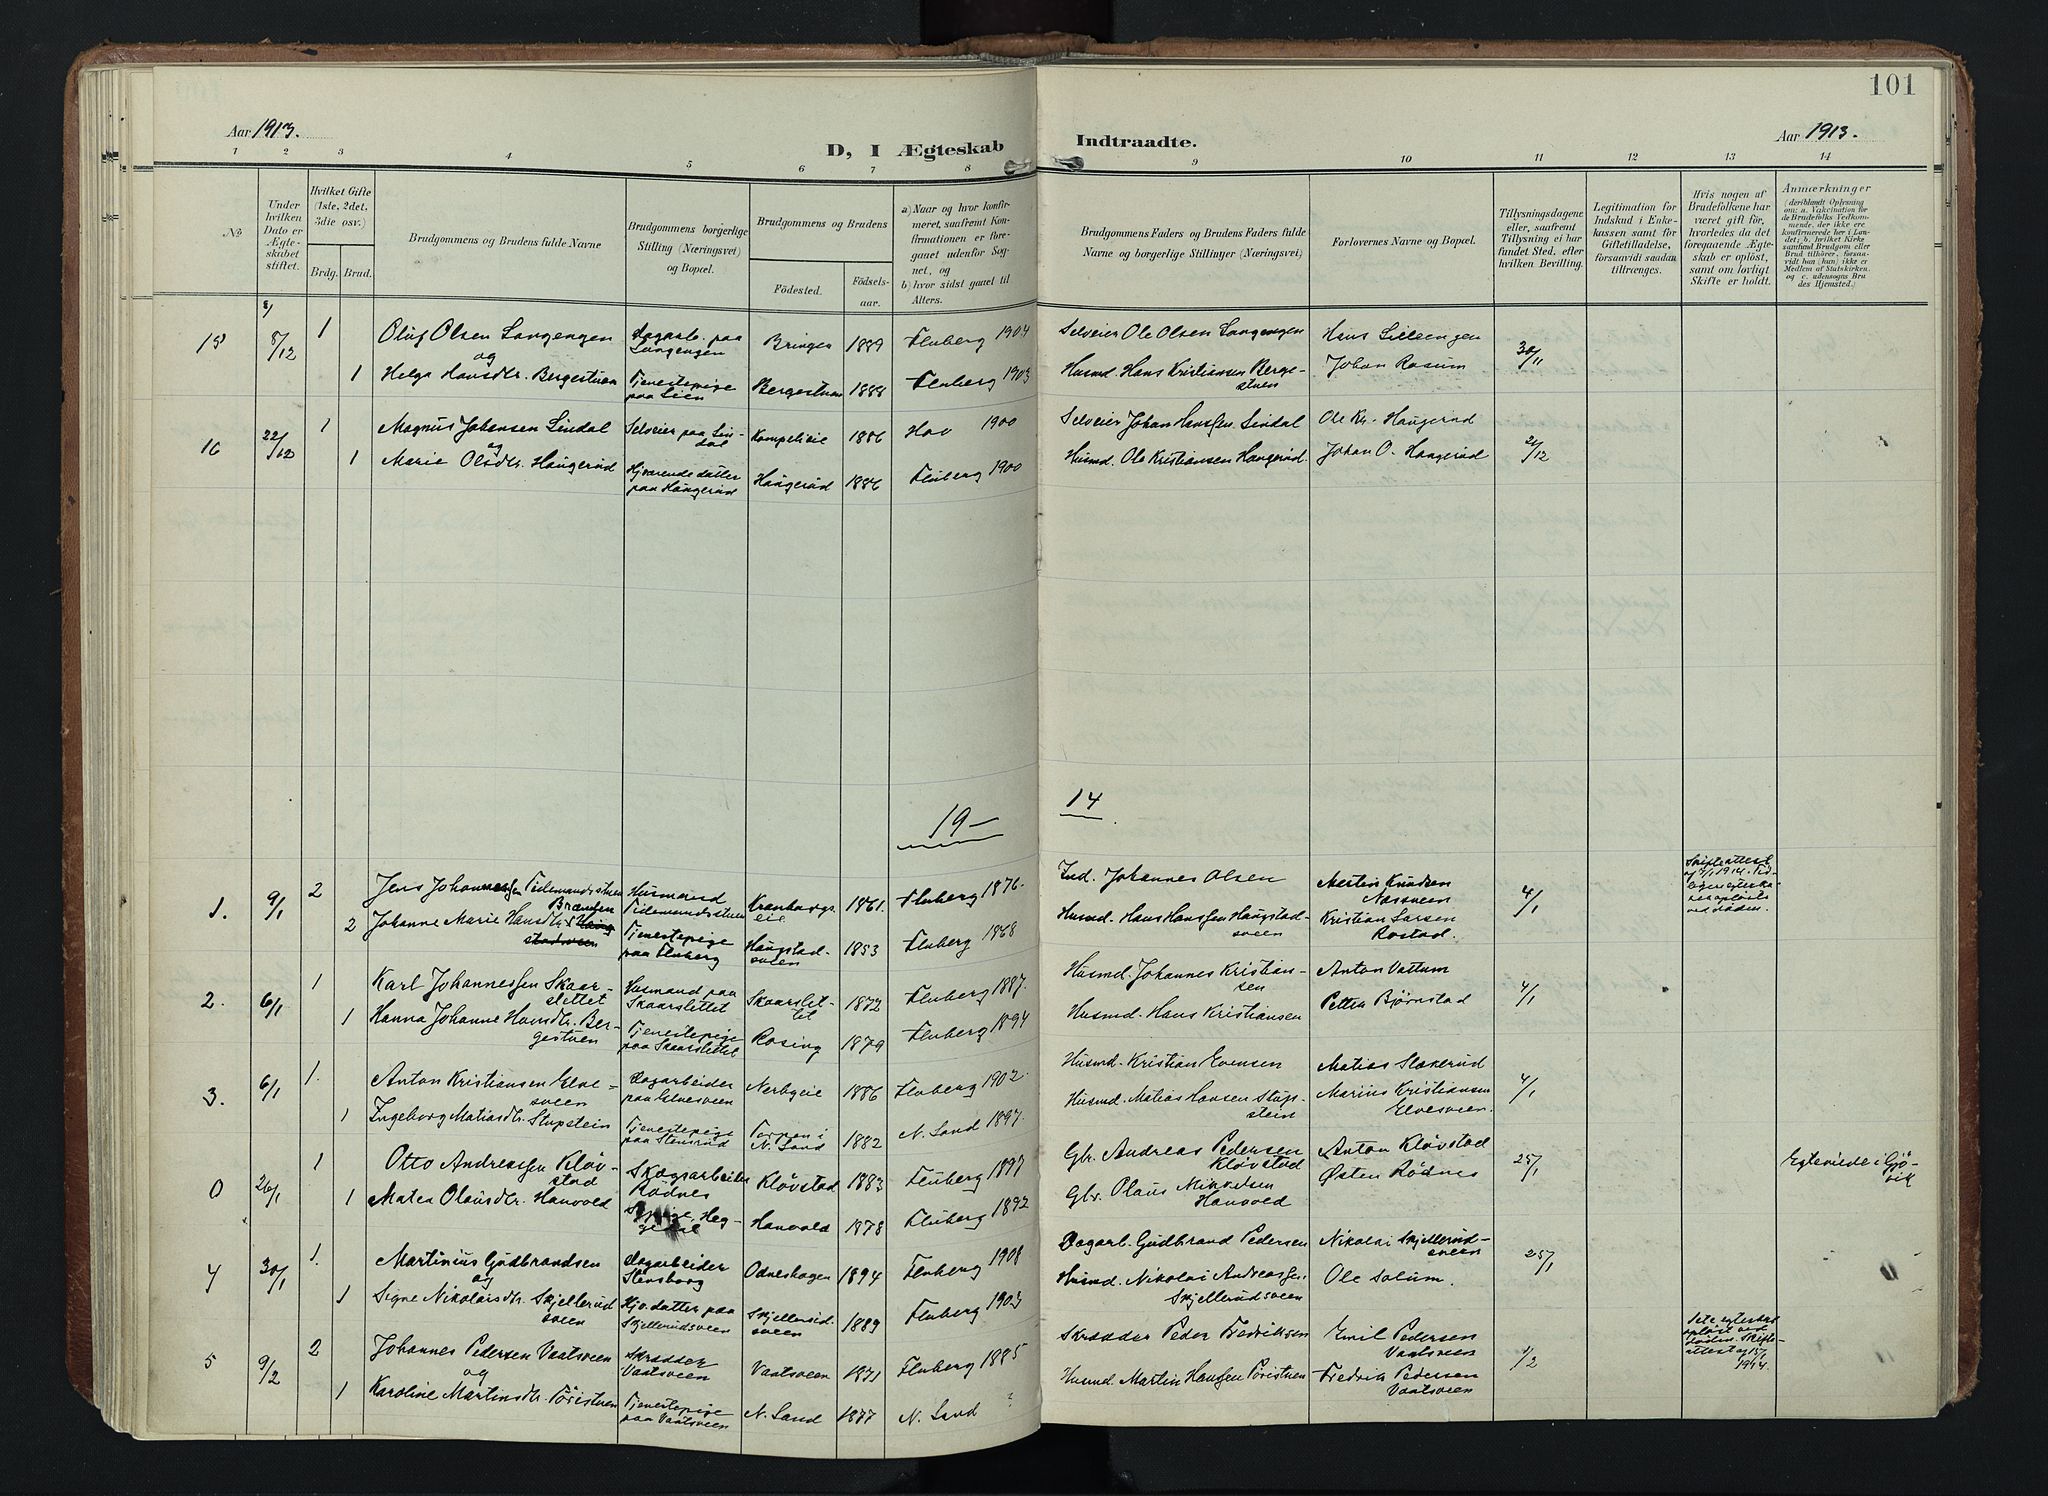 101
Aar 1913.
D, I Ægteskab Indtraadte.
Aar 1913.
1 2 3 4 5 6 7 8 9 10 11 12 13 14
No
Under hvilken Dato er Ægteskabet stiftet.
Hvilket Gifte (1ste, 2det, 3die osv.)
Brdg. Brud.
Brudgommens og Brudens fulde Navne
Brudgommens borgerlige Stilling (Næringsvei) og Bopæl.
Brudgommens og Brudens
Fødested. Fødselsaar.
a) Naar og hvor konfirmeret, saafremt Konfirmationen er foregaaet udenfor Sognet, og
b) hvor sidst gaaet til Alters.
Brudgommens Faders og Brudens Faders fulde Navne og borgerlige Stillinger (Næringsvei)
Forlovernes Navne og Bopæl.
Tillysningsdagene eller, saafremt Tillysning ei har fundet Sted, efter hvilken Bevilling.
Legitimation for Indskud i Enkekassen samt for Giftetilladelse, forsaavidt saadan tiltrænges.
Hvis nogen af Brudefolkene har været gift før, hvorledes da det foregaaende Ægteskab er opløst, samt om lovligt Skifte er holdt.
Anmærkninger (deriblandt Oplysning om: a. Vakcination for de Brudefolks Vedkommende, der ikke ere konfirmerede her i Landet; b. hvilket Kirkesamfund Brudgom eller Brud tilhører, forsaavidt han (hun) ikke er Medlem af Statskirken, og c. udensogns Brudes Hjemsted.)
15 8/12 1 Oluf Olsen Langengen Dagarb. paa Langengen Bringen 1889 Fluberg 1904 Selveier Ole Olsen Langengen Hans Lilleengen 30/11
og
1 Helga Hansdtr. Bergestuen Tjenestepige paa Lien Bergestuen 1888 Fluberg 1903 Husmd. Hans Kristiansen Bergestuen Johan Rosum
16 22/12 1 Magnus Johansen Lindal Selveier paa Lindal 1886 Hov 1900 Selveier Johan Hanssen Lindal Ole Kr. Haugerud 21/12
og
1 Marie Olsdtr. Haugerud Hjv. datter paa Haugerud Haugerud 1886 Fluberg 1900 Husmd. Ole Kristiansen Haugerud. Johan O. Haugerud
19-
14
1. 9/1 2 Jens Johannessen Tidemandsstuen Husmand Tidemandsstuen 1861. Fluberg 1876. Ind. Johannes Olsen Martin Knudsen Næssveen 4/1
2 Johanne Marie Hansdtr. Brænden Tjenestepige paa Fluberg Haugstadsveen 1853 Fluberg 1868 Husmd. Hans Hanssen Haugstadsveen Kristian Larsen Rostad.
2. 6/1 1 Karl Johannessen Skaarslettet Husmand paa Skaarslettet Skaarslettet 1872 Fluberg 1887. Husmd. Johannes Kristiansen Anton Vattum 4/1
1 Hanna Johanne Hansdtr. Bergestuen Tjenestepige paa Skaarslettet Rosing 1879 Fluberg 1894 Husmd. Hans Kristiansen Petter Bjørnstad
3. 6/1 1. Anton Kristiansen Elvesveen Dagarbeider paa Elvesveen Nerbyeie 1886 Fluberg 1902. Husmd. Kristian Evensen Matias Slaaterud 4/1
1 Ingeborg Matiasdtr. Stupstein Tjenestepige paa Stensrud Torpen i N. Land 1882 N. Land 1897. Husmd. Matias Hansen Stupstein Marius Kristiansen Elvesveen.
0 26/1 1 Otto Andreassen Kløvstad Skogarbeider Rødnes Kløvstad 1883 Fluberg 1897 Gbr. Andreas Pedersen Kløvstad Anton Kløvstad 25/1
Egteviede i Gjøvik
1 Matea Olausdtr. Hanvold Hanvold 1878 Fluberg 1892 Gbr. Olaus Mikkelsen Hanvold Østen Rødnes
4 30/1 1. Martinius Gudbrandsen Dagarbeider Stensborg Odneshagen 1894 Fluberg 1908 Dagarb. Gudbrand Pedersen Nikolai Skjellerudsveen 25/1
og
1 Signe Nikolaisdtr. Skjellerudsveen Hjv. datter paa Skjellerudsveen Skjellerudsveen 1889 Fluberg 1903 Husmd. Nikolai Andreassen Skjellerudsveen Ole Solum.
5 9/2 2 Johannes Pedersen Vaatsveen Skrædder Vaatsveen Vaatsveen 1871 Fluberg 1885 Skrædder Peder Fredriksen Emil Pedersen Vaatsveen 1/2
og
1 Karoline Martinsdtr. Töristuen Tjenestepige paa Vaatsveen N. Land 1877 N. Land ? Husmd. Martin Hansen Töristuen Fredrik Pedersen Vaatsveen